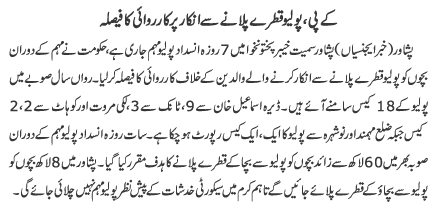 کے پی، پولیو قطرے پلانے سے انکار پر کارروائی کا فیصلہ
پشاور (خبر ایجنسیاں) پشاور سمیت خیبر پختونخوا میں 7 روزہ انسداد پولیو مہم جاری ہے، حکومت نے مہم کے دوران
بچوں کو پولیو قطرے پلانے سے انکار کرنے والے والدین کے خلاف کارروائی کا فیصلہ کر لیا۔ رواں سال صوبے میں
پولیو کے 18 کیس سامنے آئے ہیں۔ ڈیرہ اسماعیل خان سے 9، ٹانک سے 3، لکی مروت اور کوہاٹ سے 2، 2
کیس جبکہ ضلع مہمند اور نوشہرہ سے پولیو کا ایک، ایک کیس رپورٹ ہو چکا ہے۔ سات روزہ انسداد پولیو مہم کے دوران
صوبہ بھر میں 60 لاکھ سے زائد بچوں کو پولیو سے بچاؤ کے قطرے پلانے کا ہدف مقرر کیا گیا۔ پشاور میں 8 لاکھ بچوں کو
پولیو سے بچاؤ کے قطرے پلائے جائیں گے تاہم کرم میں سیکورٹی خدشات کے پیش نظر پولیو مہم نہیں چلائی جائے گی۔